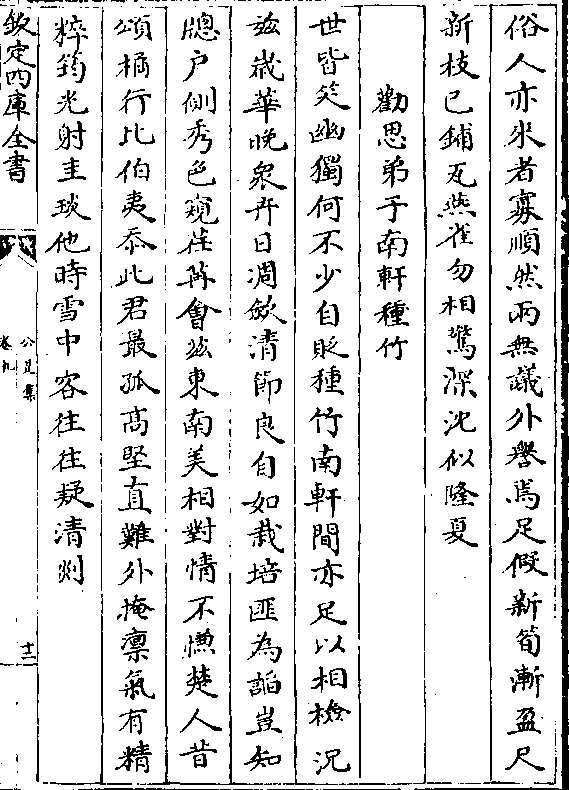 俗人亦來者寡順然兩無議外譽焉足假新筍漸盈尺
新枝已鋪瓦燕雀勿相驚深沈似隆夏
勸思弟于南軒種竹
世皆笑幽獨何不少自貶種竹南軒間亦足以相檢況
茲歲華晚衆卉日凋斂清節良自如栽培匪為謟豈知
牕户側秀色窺荏苒會茲東南美相對情不慊楚人昔
頌橘行比伯夷忝此君最孤髙堅直難外掩禀氣有精
粹筠光射圭琰他時雪中容往往疑清剡
欽定四庫全書
公是集
卷九
十二